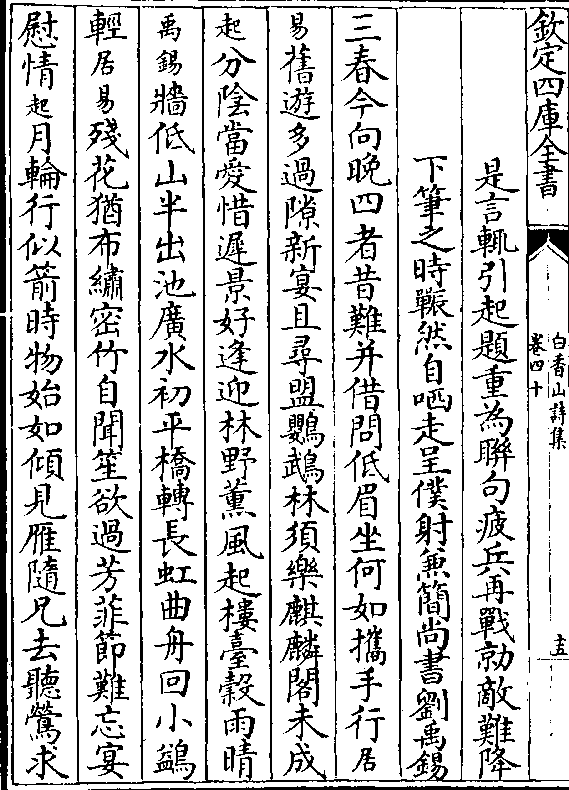 欽定四庫全書
白香山詩集
卷四十
十五
是言輒引起題重為聯句疲兵再戰勍敵難降
下筆之時囅然自哂走呈僕射兼簡尚書劉禹錫
三春今向晚四者昔難并借問低眉坐何如攜手行居
易舊遊多過隙新宴且尋盟鸚鵡林須樂麒麟閣未成
起分陰當愛惜遲景好逢迎林野薰風起樓臺穀雨晴
禹錫牆低山半出池廣水初平橋轉長虹曲舟回小鷁
輕居易殘花猶布繡密竹自聞笙欲過芳菲節難忘宴
慰情起月輪行似箭時物始如傾見雁隨兄去聽鶯求